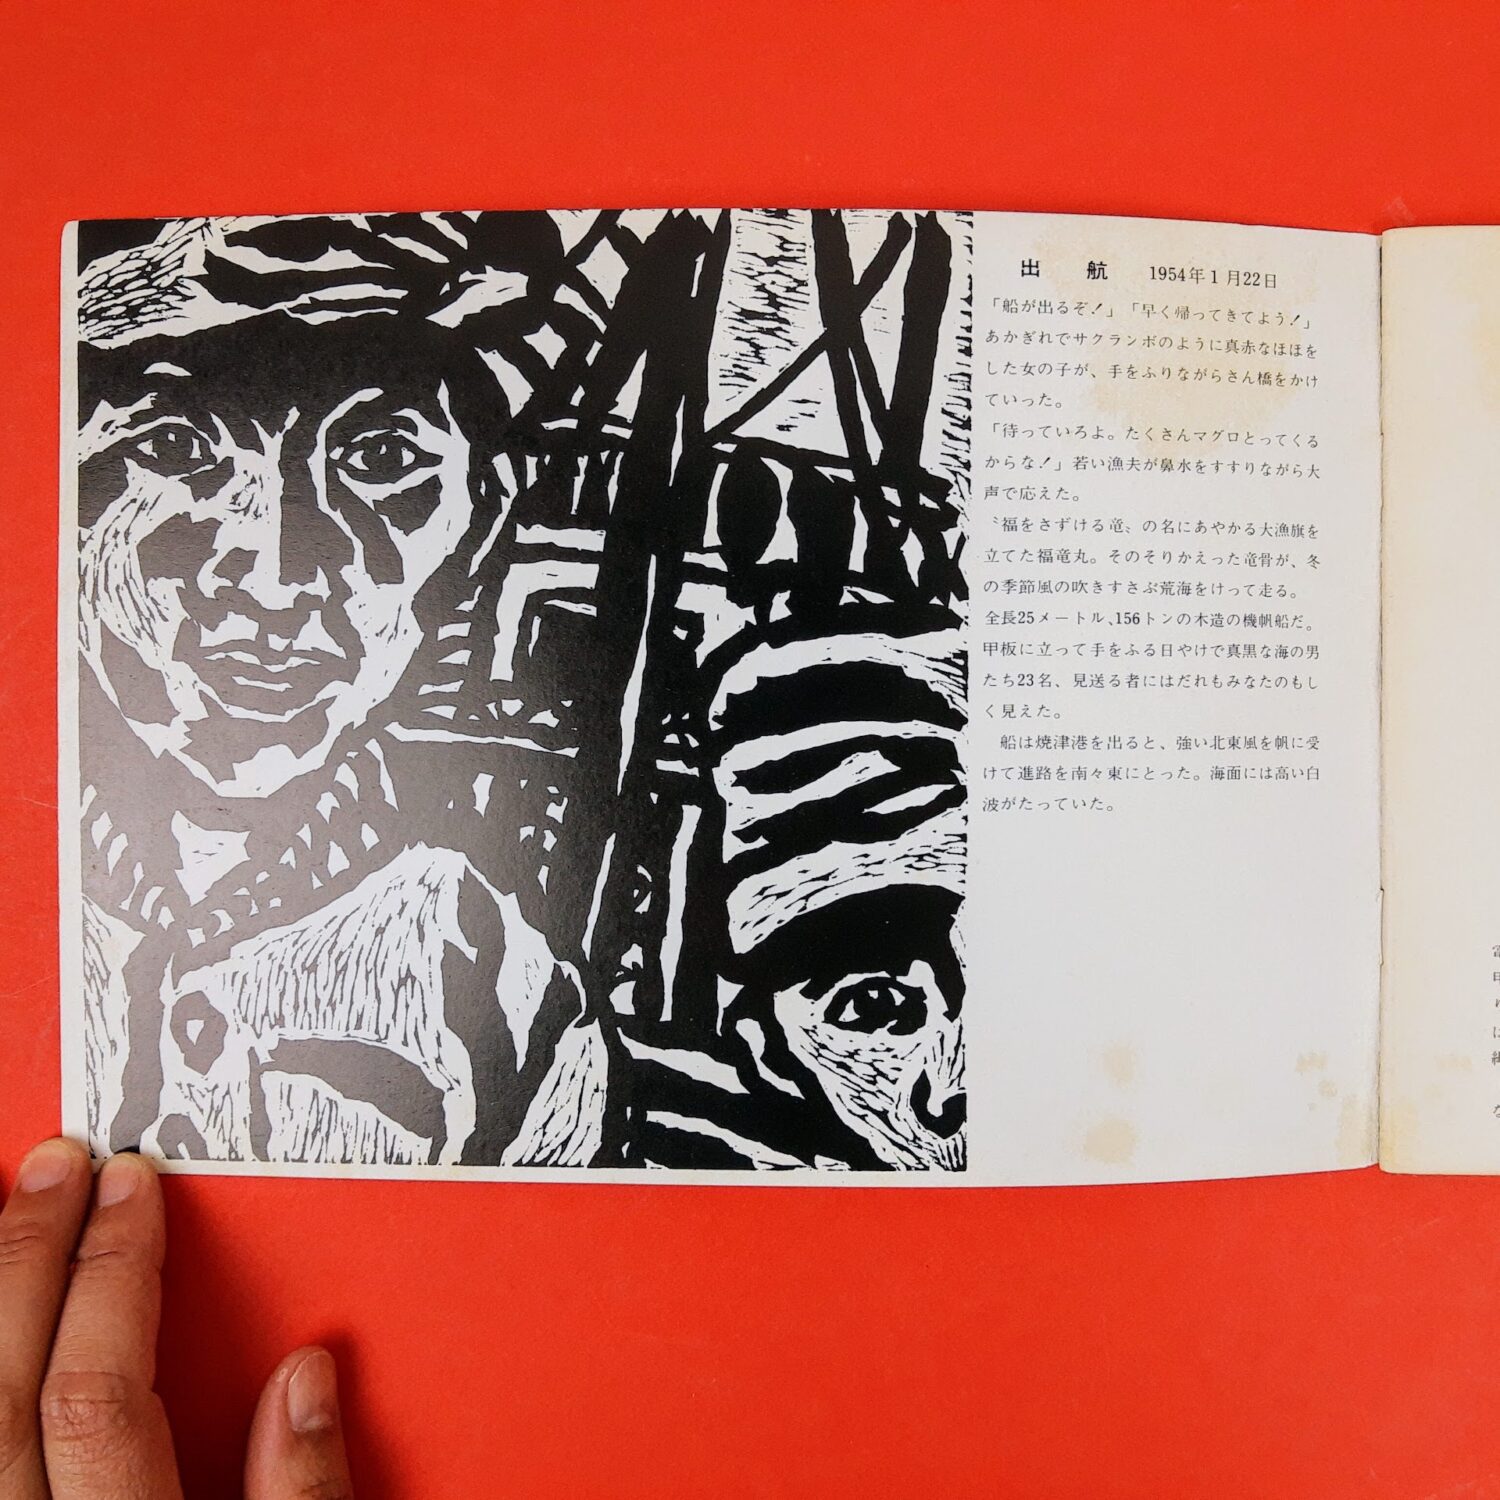 出航 1954年1月22日
「船が出るぞ！」「早く帰ってきてよう！」
あかぎれでサクランボのように真赤なほほを
した女の子が、手をふりながらさん橋をかけ
ていった。
「待っていろよ。たくさんマグロとってくる
からな！」若い漁夫が鼻水をすすりながら大
声で応えた。
〝福をさずける竜〟の名にあやかる大漁旗を
立てた福竜丸。そのそりかえった竜骨が、冬
の季節風の吹きすさぶ荒海をけって走る。
全長25メートル、156トンの木造の機帆船だ。
甲板に立って手をふる日やけで真黒な海の男
たち23名、見送る者にはだれもみなたのもし
く見えた。
船は焼津港を出ると、強い北東風を帆に受
けて進路を南々東にとった。海面には高い白
波がたっていた。